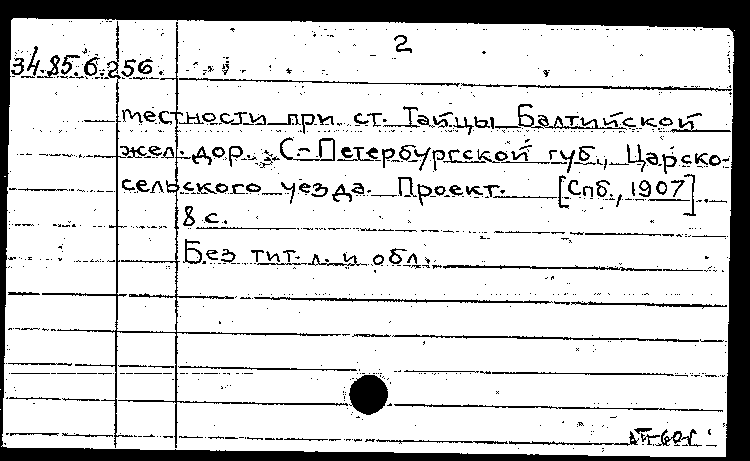 2
34.85.6.256.
местности при ст. Тайцы Балтийской
жел. дор. С.-Петербургской губ., Царско-
сельского уезда. Проект. [Спб., 1907]
8 с.
Без тит. л. и обл.